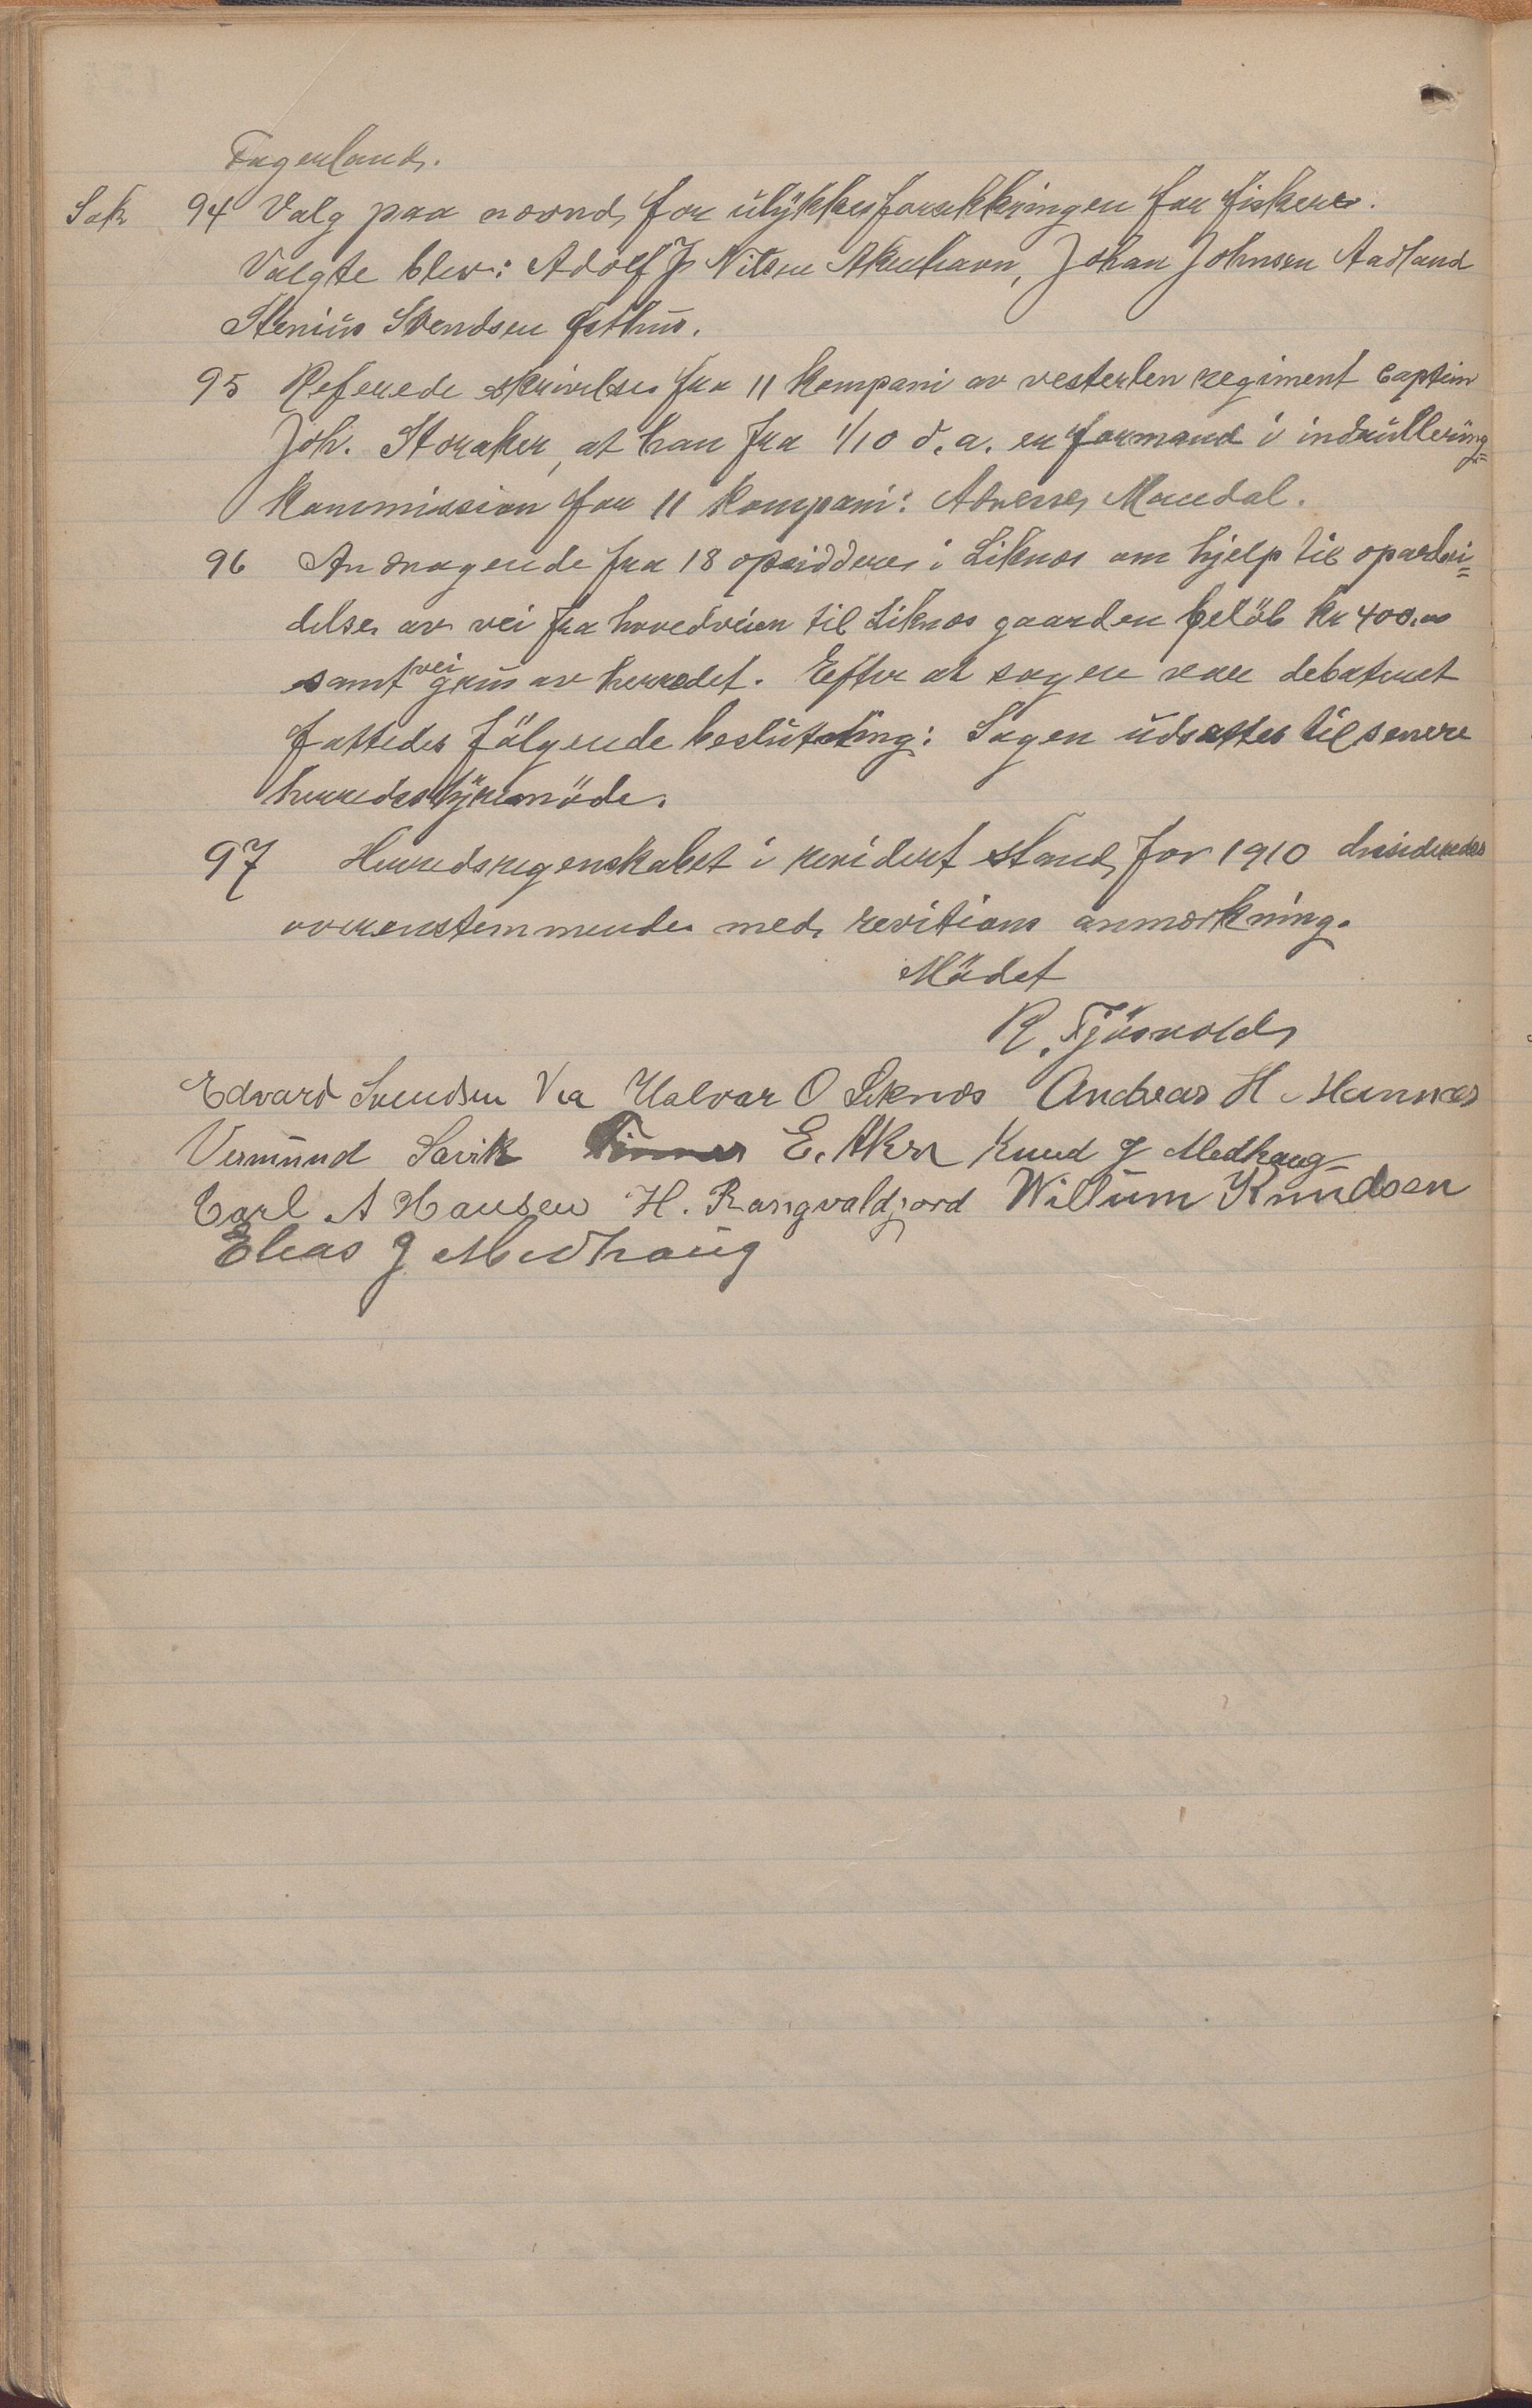 Fagerland.
Sak 94 Valg paa nævnd for ulykkesforsekkringen for fiskere.
Valgte blev: Adolf J. Nilsen Akrehavn, Johan Johnsen Aadland
Stenius Svendsen Østhus.
95 Referede skrivelse fra 11 kompani av vesterlen regiment captein
Joh. Storaker, at han fra 1/10 d.a. er formand i indrullering=
kommission for 11 kompani: Adresse, Mandal.
96 Andragende fra 18 opsiddere i Liknæs om hjelp til oparbei=
delse av vei fra hovedveien til Liknæs gaarden beløb kr 400.00
samt vei grus av herredet. Efter at sagen var debateret
fattedes følgende beslutning: Sagen udsættes til senere
herredsstyremøde.
97 Herredsregenskabet i revidert stand for 1910 desideredes
overenstemmende med revitions anmærkning.
Mødet
R. Fjøsvold
Edvard Svendsen Vea Halvar O Liknæs Andreas H. Mannes
Vermund Sævik E. Akra Knud J Medhaug
Carl A Hansen H. Rangvaldjord Willum Knudsen
Elias J Medhaug